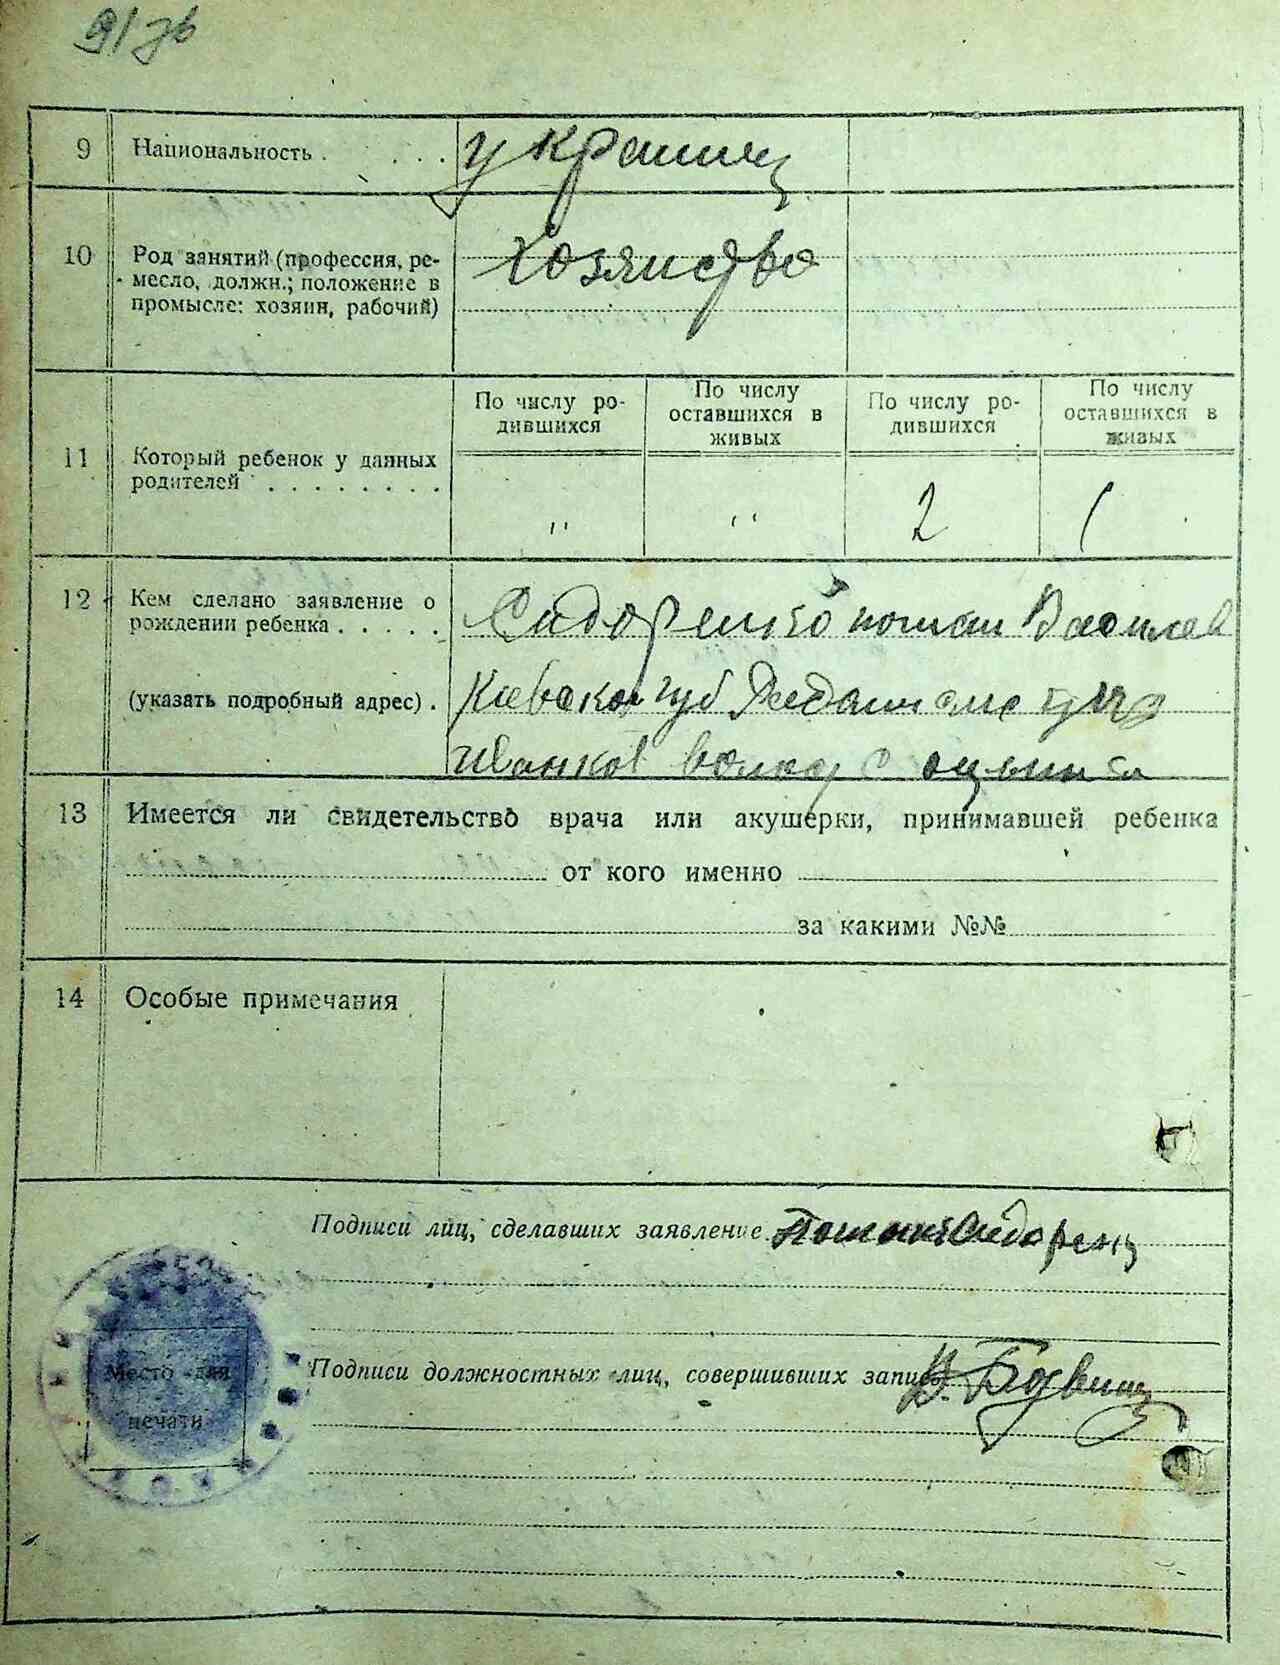 91 зв
9 Национальность . . . . украинец
10 Род занятий (профессия, ре-
месло, должн.; положение в
промысле: хозяин, рабочий)
хозяиство
По числу ро-
дившихся
По числу
оставшихся в
живых
По числу ро-
дившихся
По числу
оставшихся в
живых
11 Который ребенок у данных
родителей . . . . . . . .
" " 2 1
12 Кем сделано заявление о
рождении ребенка . . . . .
Сидоренко Василев
(указать подробный адрес) . губ
волос с
13 Имеется ли свидетельство врача или акушерки, принимавшей ребенка
от кого именно
за какими №№
14 Особые примечания
Подписи лиц, сделавших заявление. Сидоренк
Место для
печати
Подписи должностных лиц, совершивших запись В.